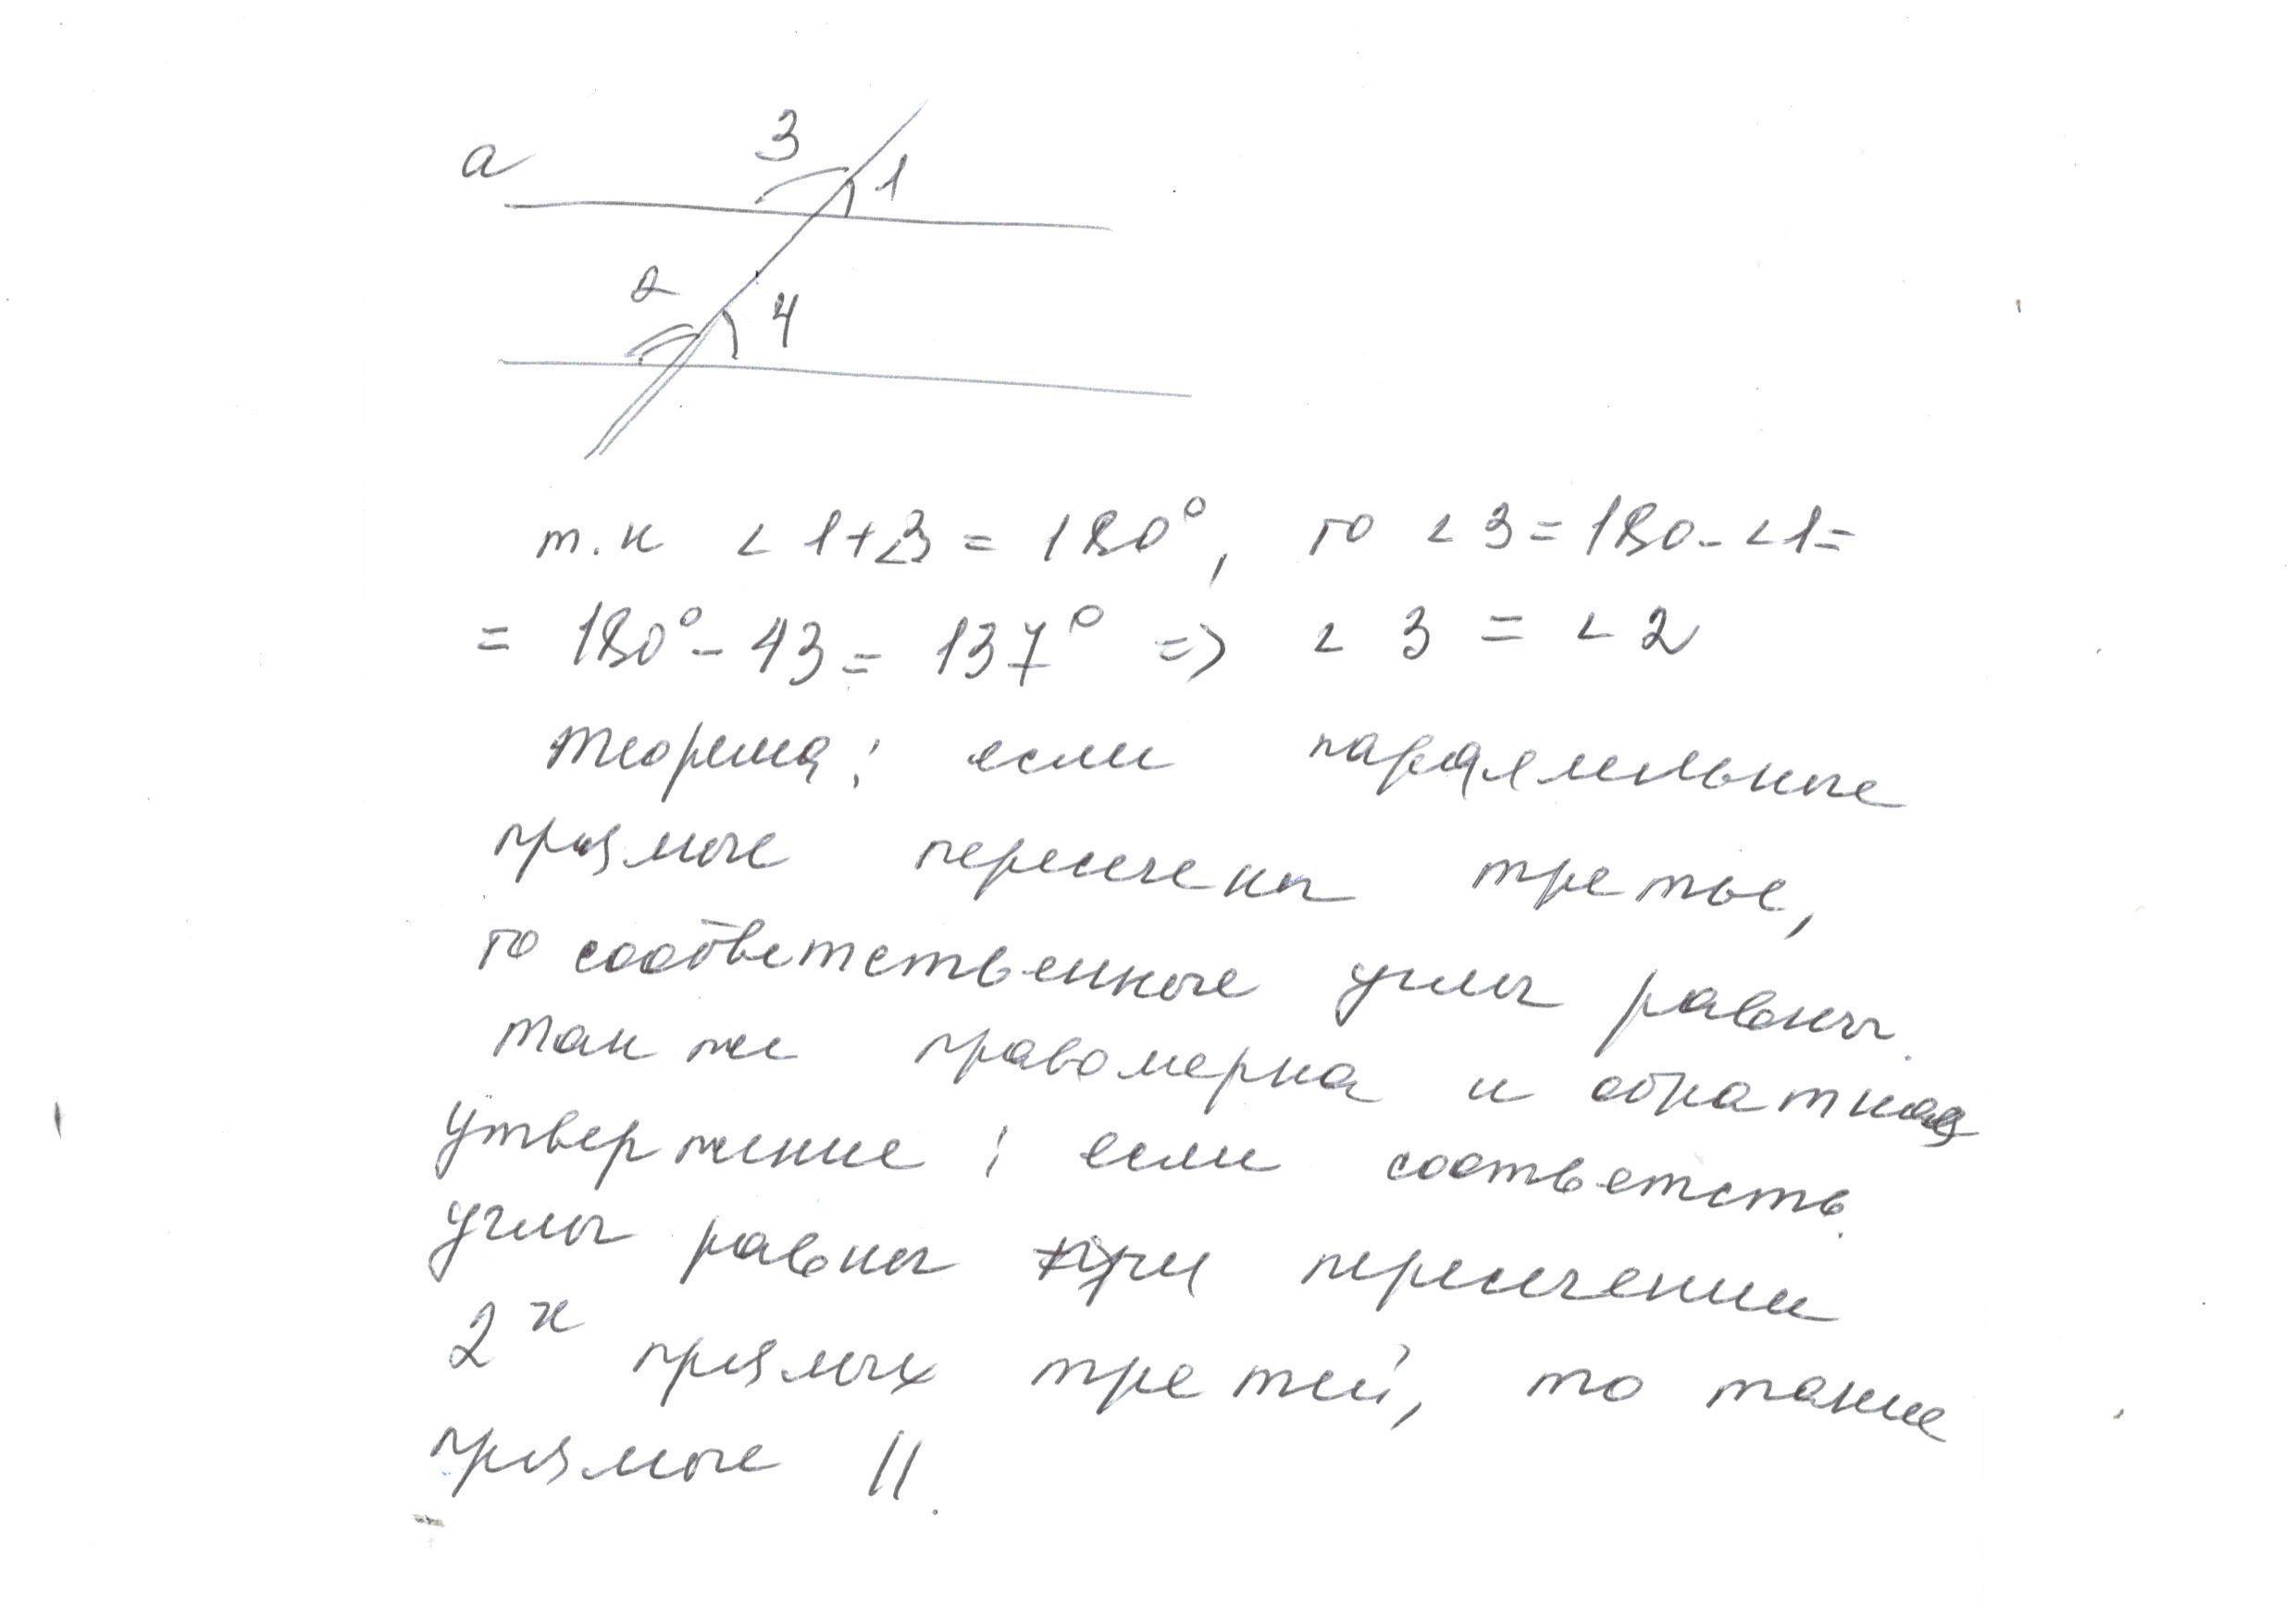 3
a
1
2
4
т.к ∠1+∠3 = 180°, то ∠3 = 180 - ∠1 =
= 180° - 43 = 137° => ∠3 = ∠2
теорема: если параллельные
прямые пересечены третье,
то соответственные углы равны.
так же правомерна и обратная
утвержение: если соответств.
углы равны при пересечении
2х прямых третей, то такие
прямые ||.